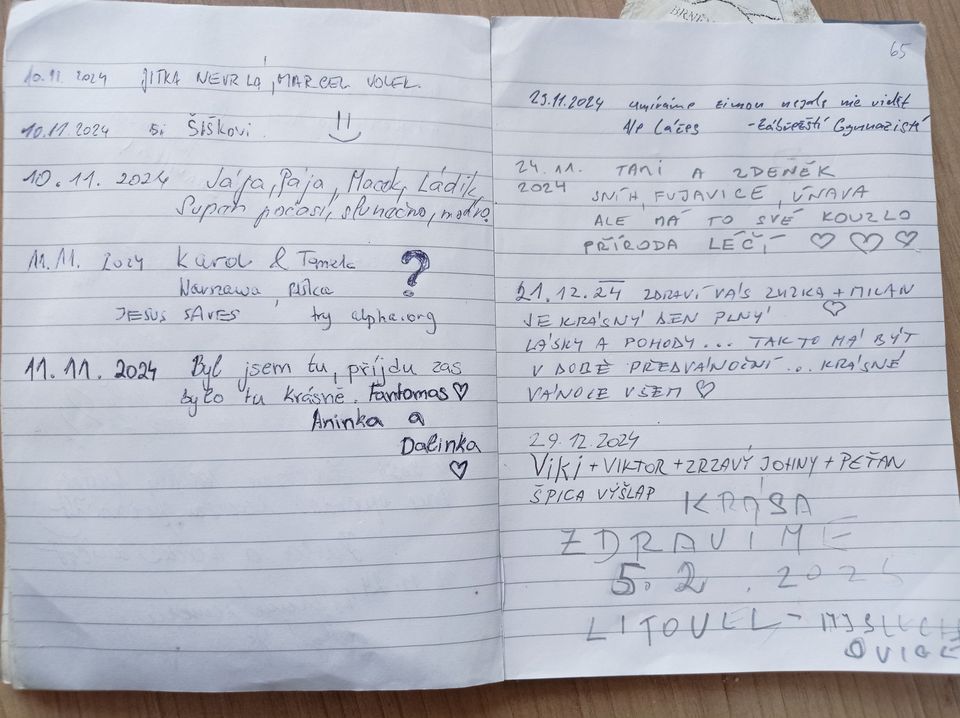 10.11 2024 JITKA NEVRLÁ, MARCEL VOLEK.
10.11 2024 Šiškovi
10.11.2024 Jája, Pája, Macek, Ládik,
Super počasí, slunečno, modro.
11.11. 2024 Karol & Tomek ?
Warszawa, Polska
JESUS SAVES try alpha.org
11.11.2024 Byl jsem tu, příjdu zas
bylo tu krásně. Fantomas ♡
Aninka a
Dalinka
♡
BRNĚ
65
23.11.2024 umíráme zimou nejde nic vidět
Ale -Zábřežští Gymnazisti
24.11. TAMI A ZDENĚK
2024 SNÍH, FUJAVICE, ÚNAVA
ALE MÁ TO SVÉ KOUZLO
PŘÍRODA LÉČÍ ♡ ♡ ♡
21.12.24 ZDRAVÍ VÁS ZUZKA + MILAN
JE KRÁSNÝ DEN PLNÝ ♡
LÁSKY A POHODY... TAK TO MÁ BÝT
V DOBĚ PŘEDVÁNOČNÍ ... KRÁSNÉ
VÁNOCE VŠEM ♡
29.12.2024
Viki + VIKTOR + ZRZAVÝ JOHNY + PEŤAN
ŠPICA VÝŠLAP
KRÁSA
ZDRAVÍME
5.2.2025
LITOVEL -